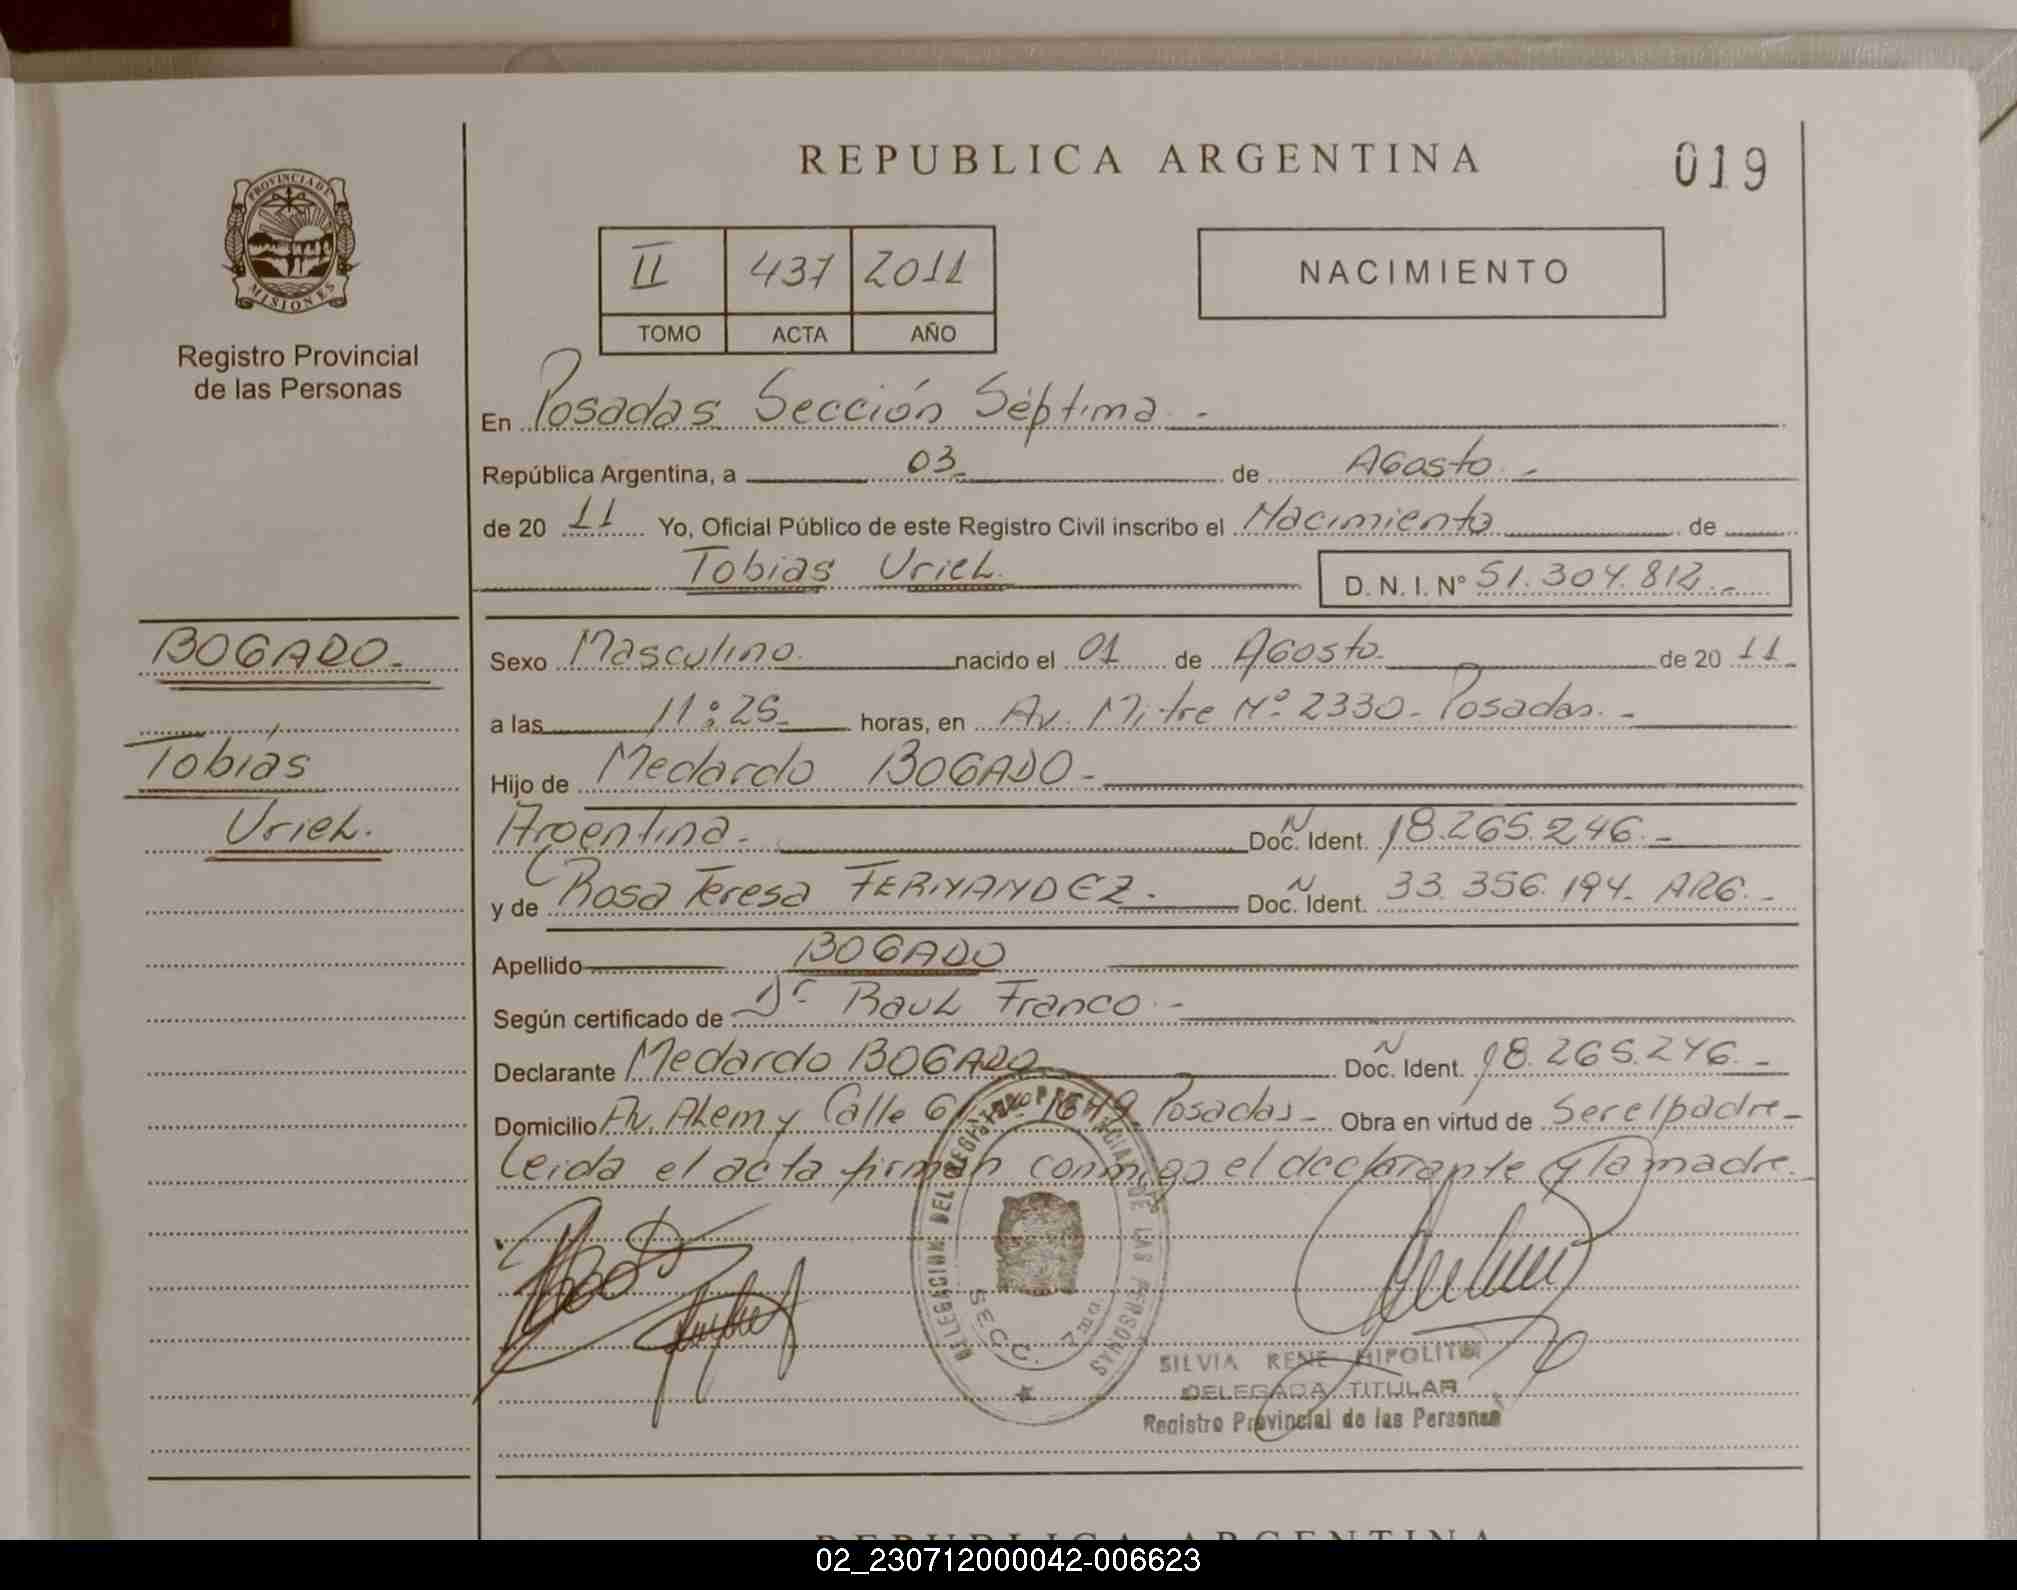 REPUBLICA ARGENTINA
019
PROVINCIA DE
MISIONES
Registro Provincial
de las Personas
II 437 2011
TOMO ACTA AÑO
NACIMIENTO
En Posadas Sección Séptima.-
República Argentina, a 03 de Agosto.-
de 20 11 Yo, Oficial Público de este Registro Civil inscribo el Nacimiento de
Tobias Uriel.
D. N. I. N° 51.304.812.-
BOGADO.-
Tobias
Uriel.
Sexo Masculino. nacido el 01 de Agosto. de 20 11.-
a las 11:25.- horas, en Av. Mitre Nº 2330- Posadas.-
Hijo de Medardo BOGADO.-
Argentina.- Doc. N Ident. 18.265.246.-
y de Rosa Teresa FERNANDEZ.- Doc. N Ident. 33.356.194- ARG.-
Apellido BOGADO
Según certificado de Dr Raul Franco.-
Declarante Medardo BOGADO Doc. N Ident. 18.265.246.-
Domicilio Av. Alem y Calle 1649 Posadas- Obra en virtud de Ser el padre-
Leida el acta firman conmigo el declarante y la madre.
DELEGACION DEL REGISTRO PROVINCIAL DE LAS PERSONAS
SECC. 7ma.
SILVIA RENE HIPOLITO
DELEGADA TITULAR
Registro Provincial de las Personas
REPUBLICA ARGENTINA
02_230712000042-006623